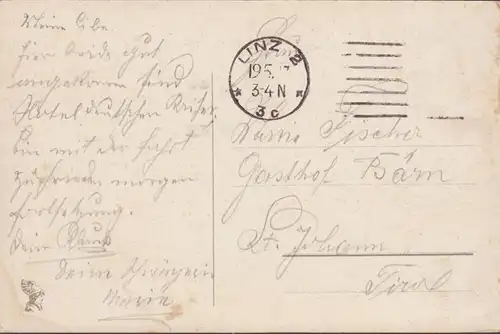 Meine Liebe
hier beide gut
angekommen sind
Hotel deutschen Kaiser.
bin mit der Fahrt
zufrieden morgen
Fortsetzung.
Dein
Deine Schwägerin
Marie
LINZ 2
3-4 N
* 3c *
Fischer
Gasthof Bärn
St. Johann
Tirol